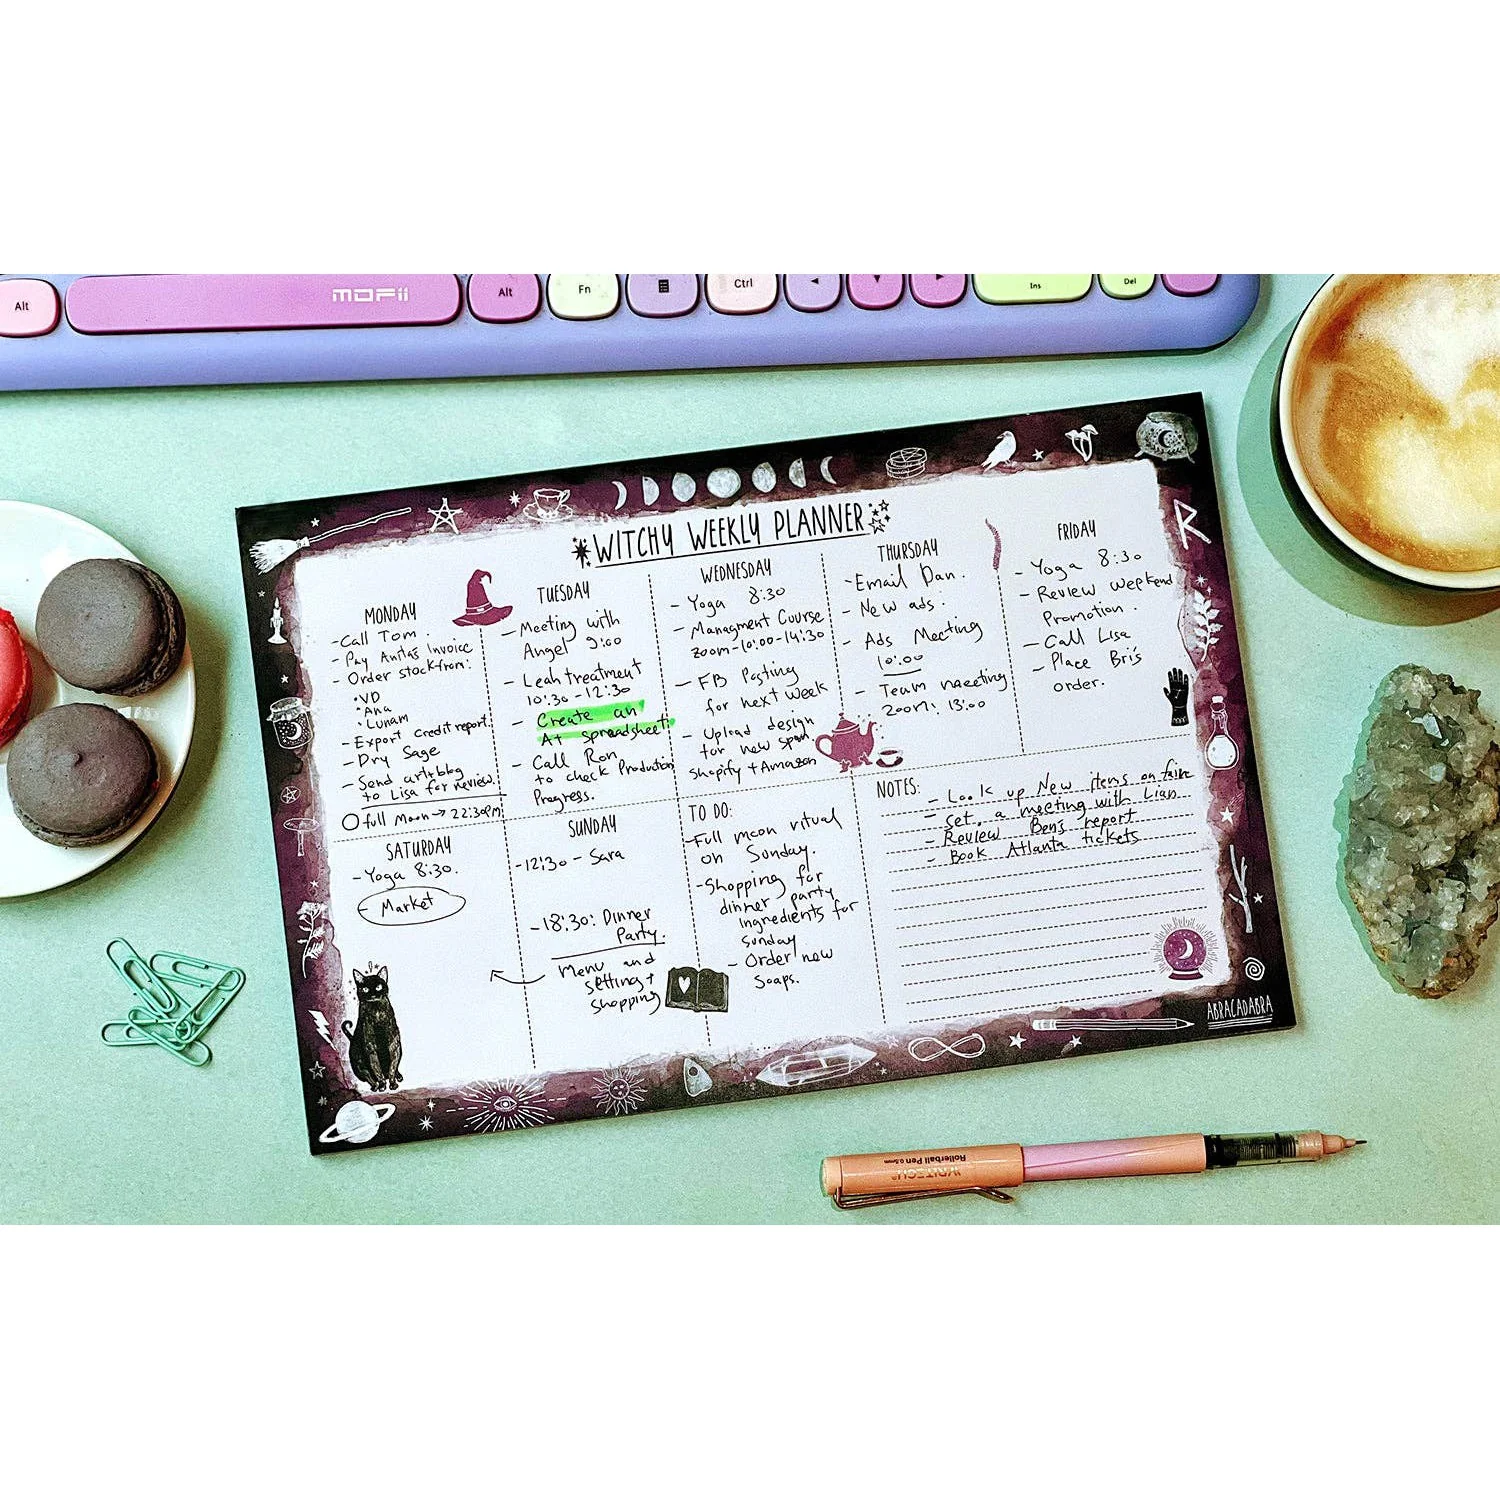 Alt
MOFii
Alt
Fn
Ctrl
Ins
Del
WITCHY WEEKLY PLANNER
MONDAY
- Call Tom.
- Pay Anitas Invoice
- Order stock from:
• VD
• Ana
• Lunam
- Export credit report.
- Dry Sage
- Send art+blog
to Lisa for review.
full Moon → 22:30PM
TUESDAY
- Meeting with
Angel 9:00
- Leah treatment
10:30 - 12:30
- Create an
At spreadsheet
- Call Ron
to check Production
Progress.
WEDNESDAY
- Yoga 8:30
- Managment Course
zoom - 10:00 - 14:30
- FB Posting
for next week
- Upload design
for new
Shopify + Amazon
THURSDAY
- Email Dan.
- New ads.
- Ads Meeting
10:00
- Team meeting
zoom: 13:00
FRIDAY
- Yoga 8:30
- Review weekend
Promotion.
- Call Lisa
- Place Bri's
order.
SATURDAY
- Yoga 8:30.
- Market
SUNDAY
- 12:30 - Sara
- 18:30: Dinner
Party.
Menu and
setting +
shopping
TO DO:
- Full moon ritual
on Sunday.
- Shopping for
dinner party
ingredients for
Sunday
- Order new
Soaps.
NOTES:
- Look up New items on
- set. a meeting with Lian
- Review Ben's report
- Book Atlanta tickets
ABRACADABRA
WRITECH
Rollerball Pen 0.5mm